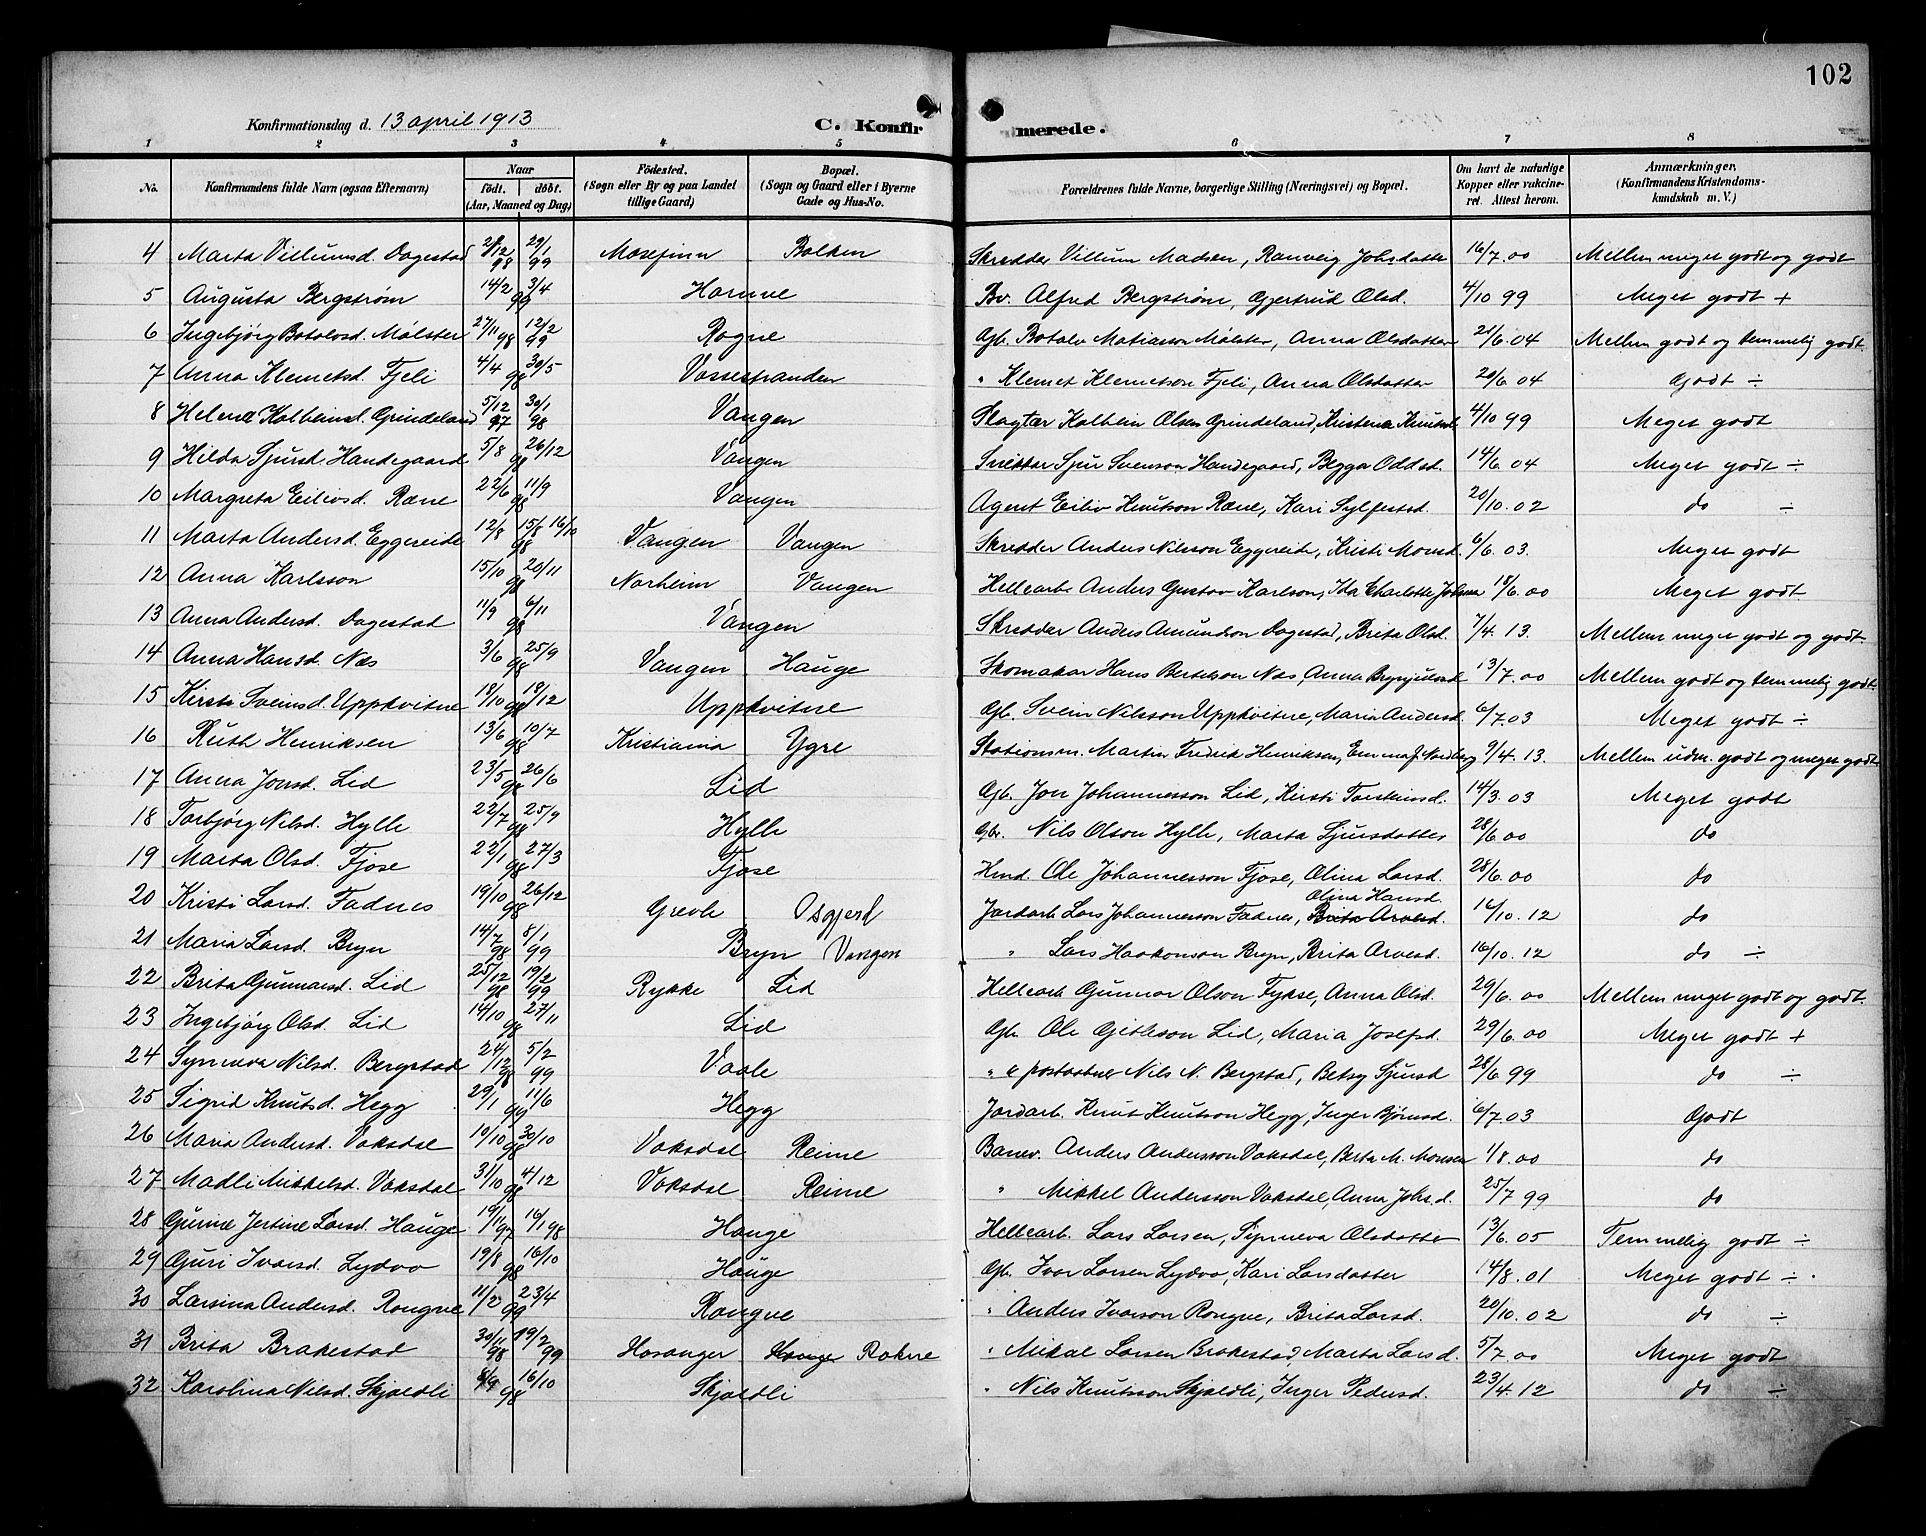 102
Konfirmationsdag d. 13 april 1913 C. Konfirmerede.
1 2 3 4 5 6 7 8
No. Konfirmandens fulde Navn (ogsaa Efternavn) Naar födt. döbt. (Aar, Maaned og Dag) Födested. (Sogn eller By og paa Landet tillige Gaard) Bopæl. (Sogn og Gaard eller i Byerne Gade og Hus-No. Forældrenes fulde Navne, borgerlige Stilling (Næringsvei) og Bopæl. Om havt de naturlige Kopper eller vakcineret. Attest herom. Anmærkninger. (Konfirmandens Kristendomskundskab m. V.)
4 Marta Villumsd. Dagestad 29/1 99 Mosefinn Bolken Skredder Villum Madsen, Ranveig Johsdatter 16/7.00 Mellem meget godt og godt
5 Augusta Bergstrøm 14/2 3/4 99 Hornve Bv. Alfred Bergstrøm, Gjertrud Olsd. 4/10 99 Meget godt +
6 Ingebjørg Botolvsd. Mølster 27/11 98 12/2 99 Rogne Gb. Botolv Matiasson Mølster, Anna Olsdatter 21/6.04 Mellem godt og temmelig godt
7 Anna Klemetsd. Fjeli 4/4 30/5 98 Vossestranden " Klemet Klemetson Fjeli, Anna Olsdatter 20/6 04 Godt ÷
8 Helena Kolbeinsd. Grindeland 5/12 97 30/1 98 Vangen Slagtar Kolbein Olsen Grindeland, Kristena Knutsd 4/10 99 Meget godt
9 Hilda Sjursd. Handegaard 5/8 26/12 98 Vangen Snikkar Sjur Svenson Handegaard, Begga Oddsd. 14/6.04 Meget godt ÷
10 Margreta Eilivsd. Ræne 22/6 11/9 98 Vangen Agent Eiliv Knutson Ræne, Kari Sylfestsd. 20/10.02 do ÷
11 Marta Andersd. Eggereide 12/8 15/8 16/10 98 Vangen Vangen Skredder Anders Nilsson Eggereide, Kristi Monsd. 6/6 03. Meget godt
12 Anna Karlsson 15/10 20/11 98 Norheim Vangen Hellearb. Anders Gustav Karlson, Ida Charlotte 18/6.00 Meget godt
13 Anna Andersd. Dagestad 11/9 6/11 98 Vangen Skredder Anders Amundson Dagestad, Brita Olsd. 7/4.13. Mellem meget godt og godt
14 Anna Hansd. Næs 3/6 25/9 98 Vangen Hauge Skomakar Hans Bertelson Næs, Anna Brynjulvsd 13/7.00 Mellem godt og temmelig godt
15 Kirsti Sveinsd. Uppkvitne 18/10 18/12 98 Uppkvitne Gb. Svein Nilsson Uppkvitne, Maria Andersd. 6/7.03 Meget godt ÷
16 Ruth Henriksen 13/6 10/7 98 Kristiania Ygre Stationsm. Martin Fredrik Henriksen, Emma J. Nordberg 9/4.13. Mellem udm. godt og meget godt
17 Anna Jonsd. Lid 23/5 26/6 98 Lid Gb. Jon Johannesson Lid, Kirsti Torsteinsd. 14/3.03 Meget godt
18 Torbjørg Nilsd. Hylle 22/7 25/9 98 Hylle Gbr. Nils Olson Hylle, Marta Sjursdatter 28/6 00 do
19 Marta Olsd. Fjose 22/1 27/3 98 Fjose Hmd. Ole Johannesson Fjose, Olina Larsd. 28/6.00 do
20 Kristi Larsd. Fadnes 19/10 26/12 98 Grevle Osgjerd Jordarb. Lars Johannesson Fadnes, Brita Arvesd. Olina Hansd. 16/10.12 do
21 Maria Larsd. Bryn 14/7 98 8/1 99 Bryn Vangen " Lars Haakonson Bryn, Brita Arvesd. 16/10.12 do ÷
22 Brita Gunnarsd. Lid 25/12 98 19/2 99 Rykke Lid Hellearb. Gunnar Olson Fykse, Anna Olsd. 29/6.00 Mellem meget godt og godt.
23 Ingebjørg Olsd. Lid 14/10 27/11 98 Lid Gb. Ole Gitleson Lid, Maria Josefsd. 29/6.00 Meget godt +
24 Synneva Nilsd. Bergstad 24/12 98 5/2 99 Vaale " & postaabner Nils N. Bergstad, Betsy Sjursd 28/6 99 do ÷
25 Sigrid Knutsd. Hegg 29/1 11/6 99 Hegg Jordarb. Knut Knutson Hegg, Inger Bjørnsd. 6/7.03 Godt
26 Maria Andersd. Vaksdal 10/10 30/10 98 Vaksdal Reime Banev. Anders Andersson Vaksdal, Berta M. Monsen 1/8.00 do
27 Madli Mikkelsd. Vaksdal 31/10 4/12 98 Vaksdal Reime " Mikkel Andersson Vaksdal, Anna Johs.d. 25/7 99 do
28 Gurine Jertine Larsd. Hauge 19/11 97 16/1 98 Hauge Hellearb. Lars Larsen, Synneva Olsdatter 13/6.05 Temmelig godt ÷
29 Guri Ivarsd. Lydvo 19/8 16/10 98 Hauge Gb. Ivar Larsen Lydvo, Kari Larsdatter 14/8.01 Meget godt ÷
30 Larsina Andersd. Rongve 11/2 23/4 99 Rongve " Anders Ivarson Rongve, Brita Larsd. 20/10.02 do ÷
31 Brita Brakestad 30/11 98 19/2 99 Hosanger Hauge Rokne " Mikal Larsen Brakestad, Marta Larsd. 5/7.00 Meget godt
32 Karolina Nilsd. Skjældli 16/10 98 Skjældli " Nils Knutsson Skjældli, Inger Pedersd. 23/4.12 do ÷